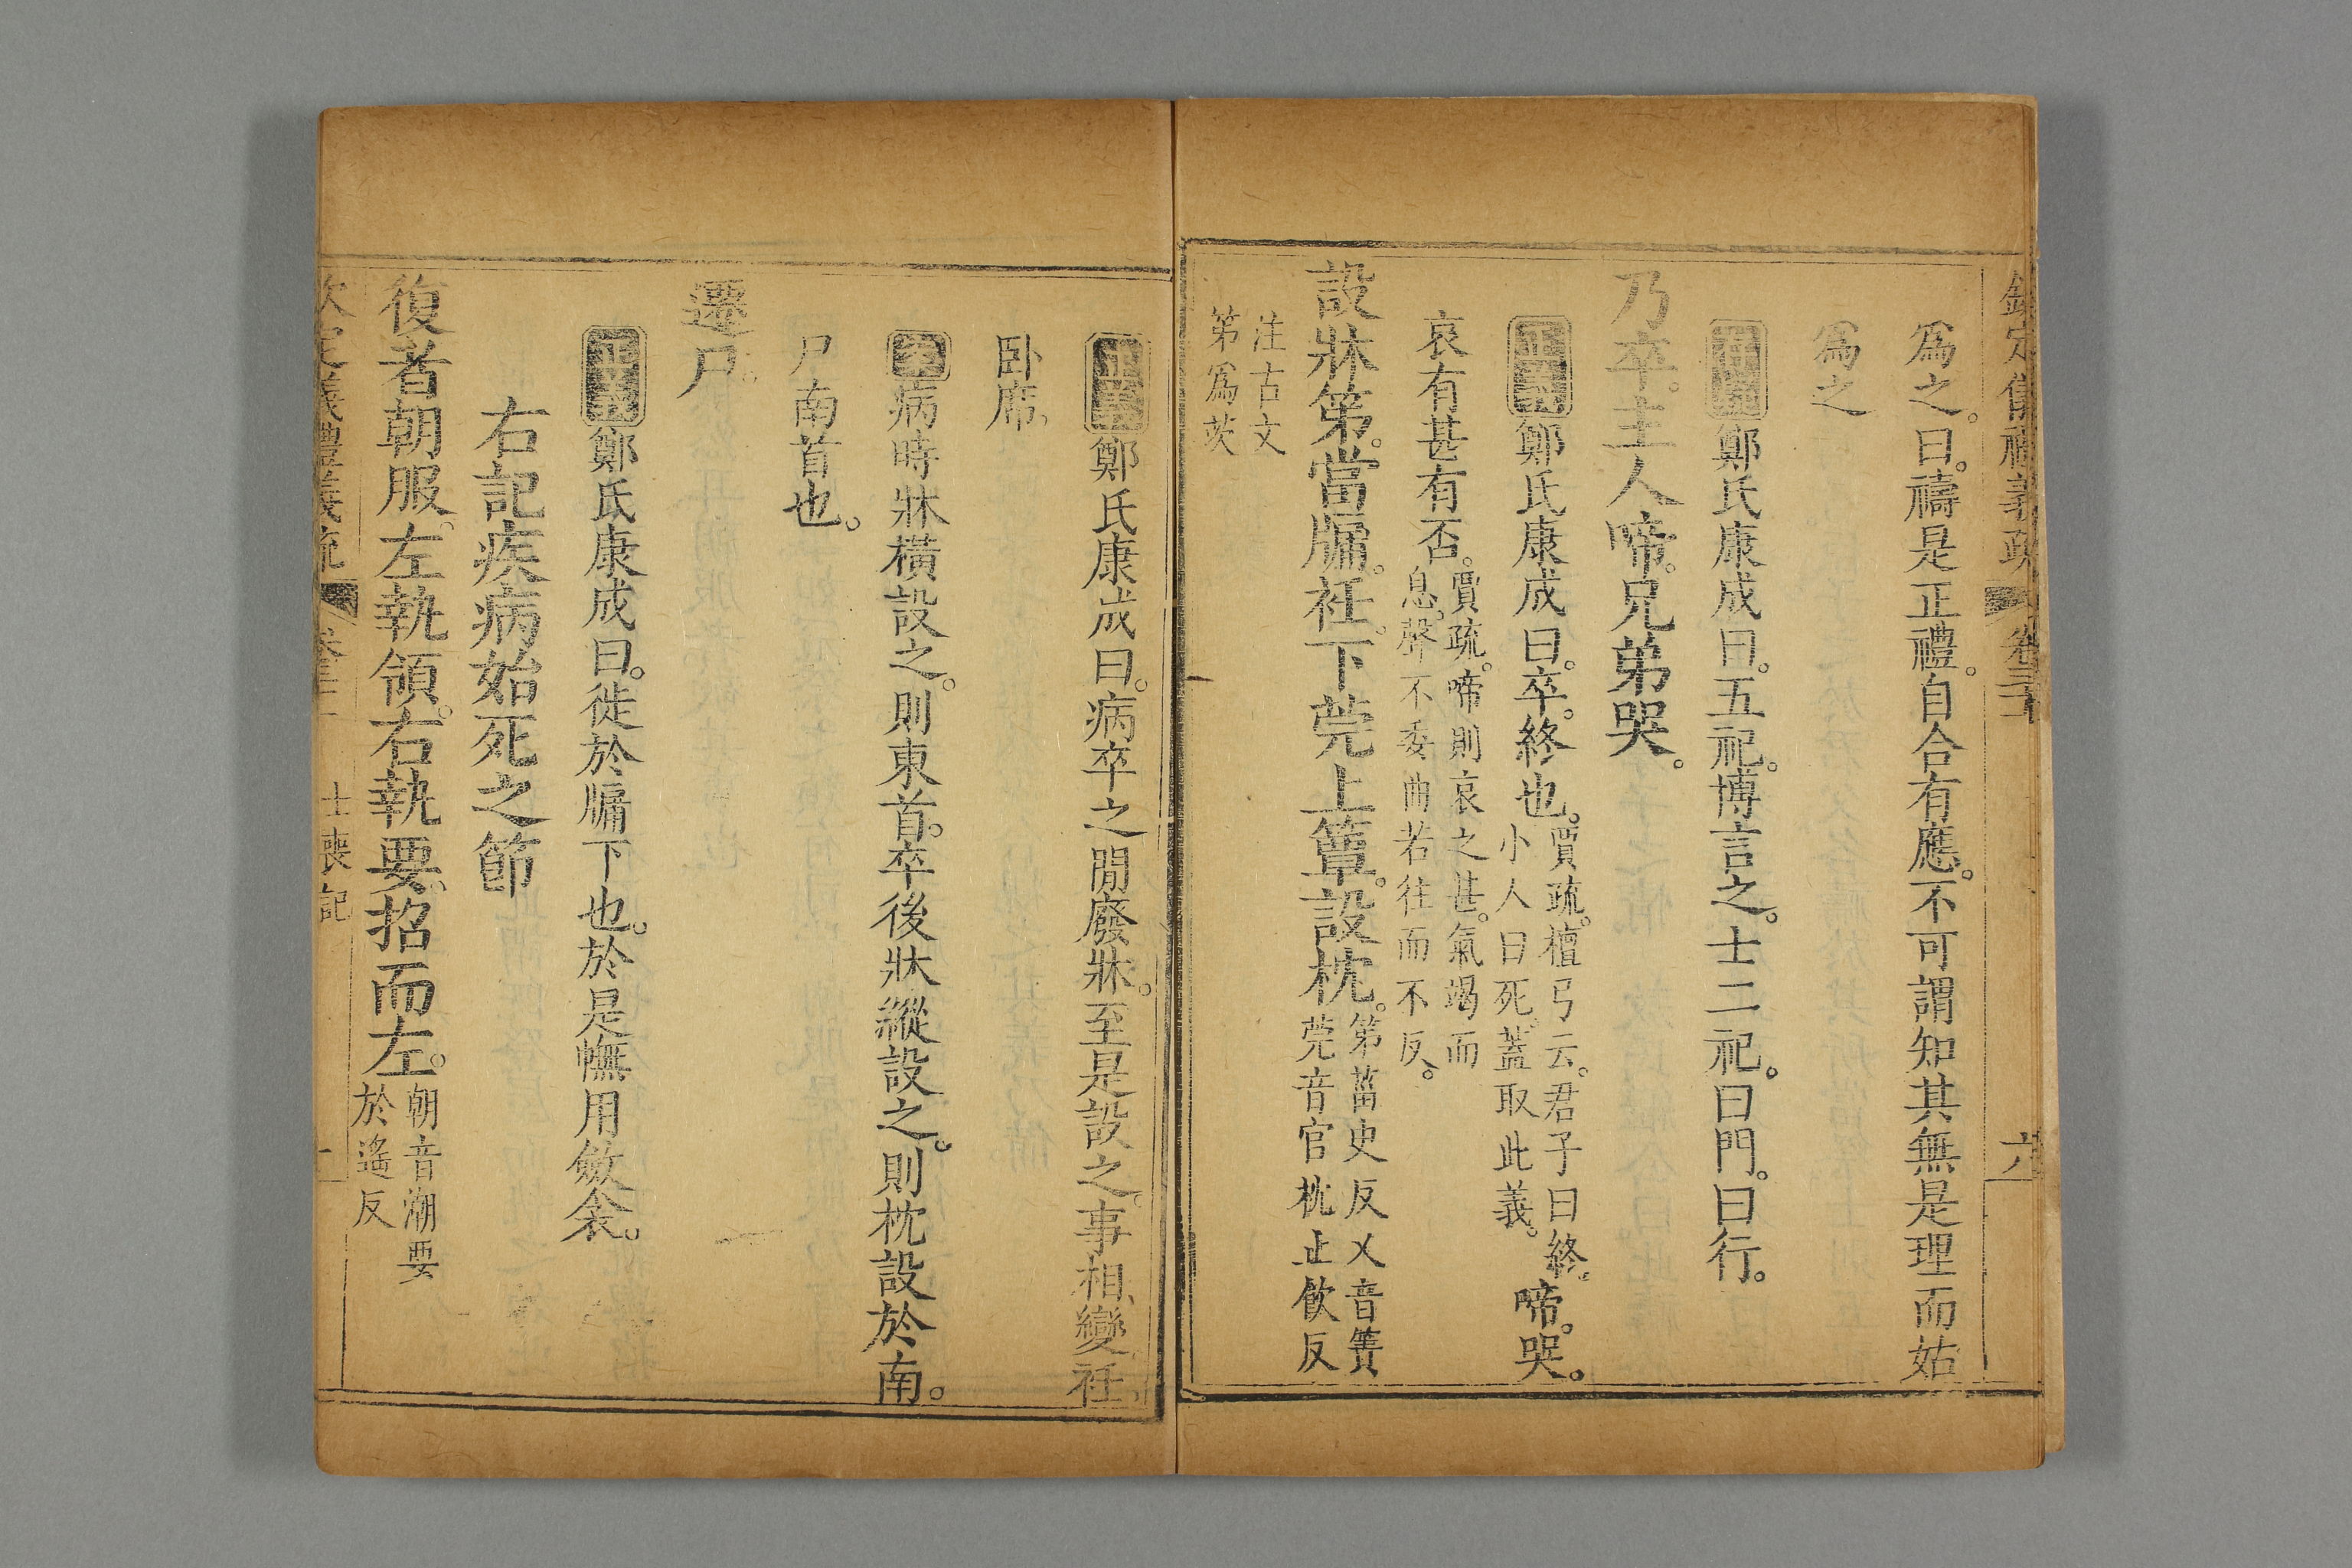 欽定儀禮義疏 卷三十 六
爲之。曰。禱是正禮。自合有應。不可謂知其無是理而姑
爲之
鄭氏康成曰。五祀。博言之。士二祀。曰門。曰行。
乃卒。主人啼。兄弟哭。
正義鄭氏康成曰。卒。終也。賈疏。檀弓云。君子曰終。
小人曰死。蓋取此義。
啼。哭。
哀有甚有否。賈疏。啼則哀之甚。氣竭而
息。聲不委曲若往而不反。
設牀笫。當牖。衽。下莞上簟。設枕。笫菑史反乂音簀
莞音官枕止飮反
注古文
笫爲茨
正義鄭氏康成曰。病卒之閒廢牀。至是設之。事相變。衽
臥席。
案病時牀橫設之。則東首。卒後牀縱設之。則枕設於南。
尸南首也。
遷尸。
正義鄭氏康成曰。徙於牖下也。於是幠用斂衾。
右記疾病始死之節
復者朝服。左執領。右執要。招而左。朝音潮要
於遙反
欽定儀禮義疏 士喪記